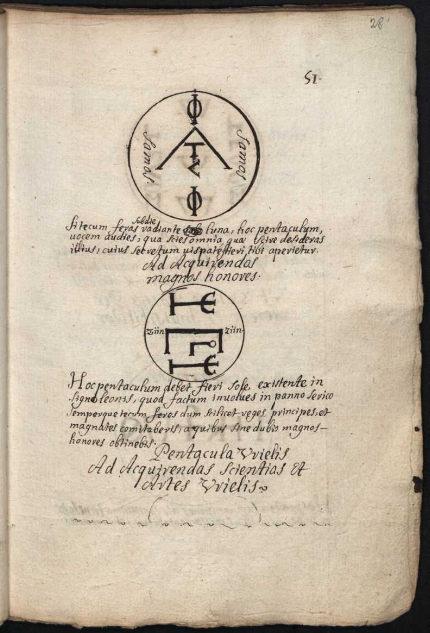 28
51.
Φ
Samas
Samas
Φ
Si tecum feras radiante sub luna, hoc pentaculum,
vocem audies, qua scies omnia, quæ scire desideras
illius, cuius secretum vi aperietur.
Ad Acquirendos
magnos honores.
Ziin
Ziin
Hoc pentaculum debet fieri sole existente in
signo leonis, quod factum inuolues in panno serico
semperque tecum feres dum scilicet reges, principes, et
magnates comitaberis, a quibus sine dubio magnos
honores obtinebis.
Pentacula Vrielis
Ad Acquirendas Scientias Et
Artes Vrielis.